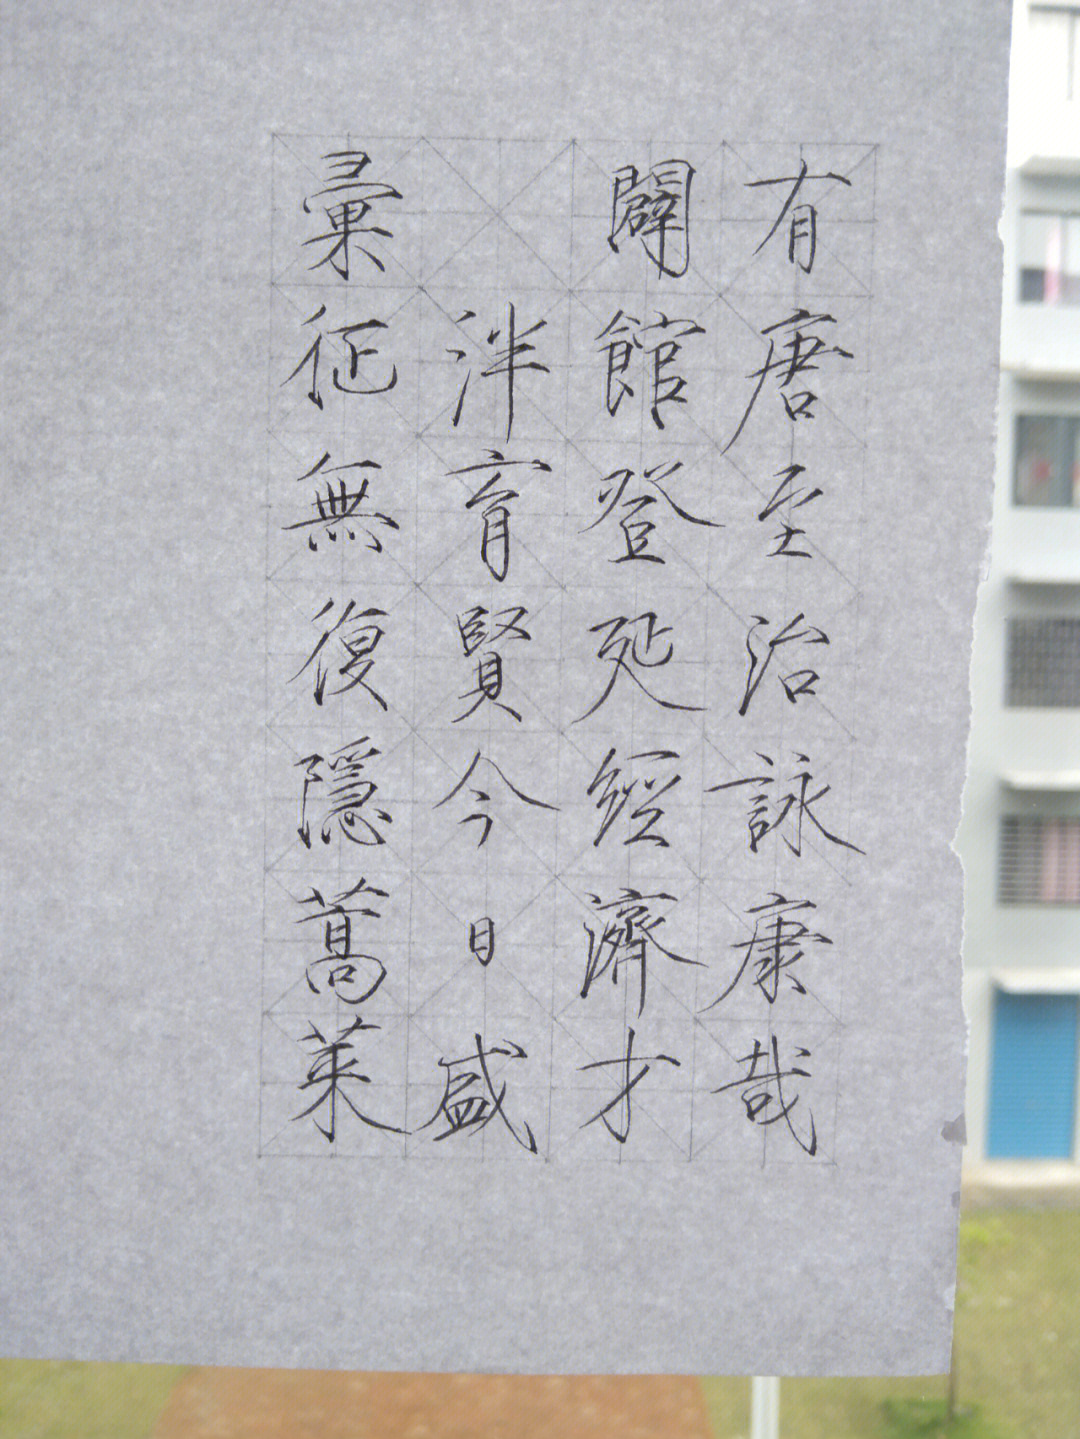 有唐至治詠康哉
闢館登延經濟才
泮育賢今日盛
彙征無復隱蒿萊